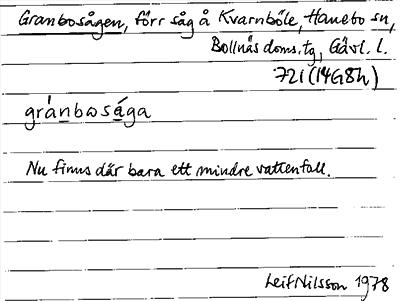 Granbosågen, förr såg å Kvarnböle, Hanebo sn,
Bollnäs doms.tg, Gävl. l.
721 (14G8h)
gránbωsága
Nu finns där bara ett mindre vattenfall.
Leif Nilsson 1978